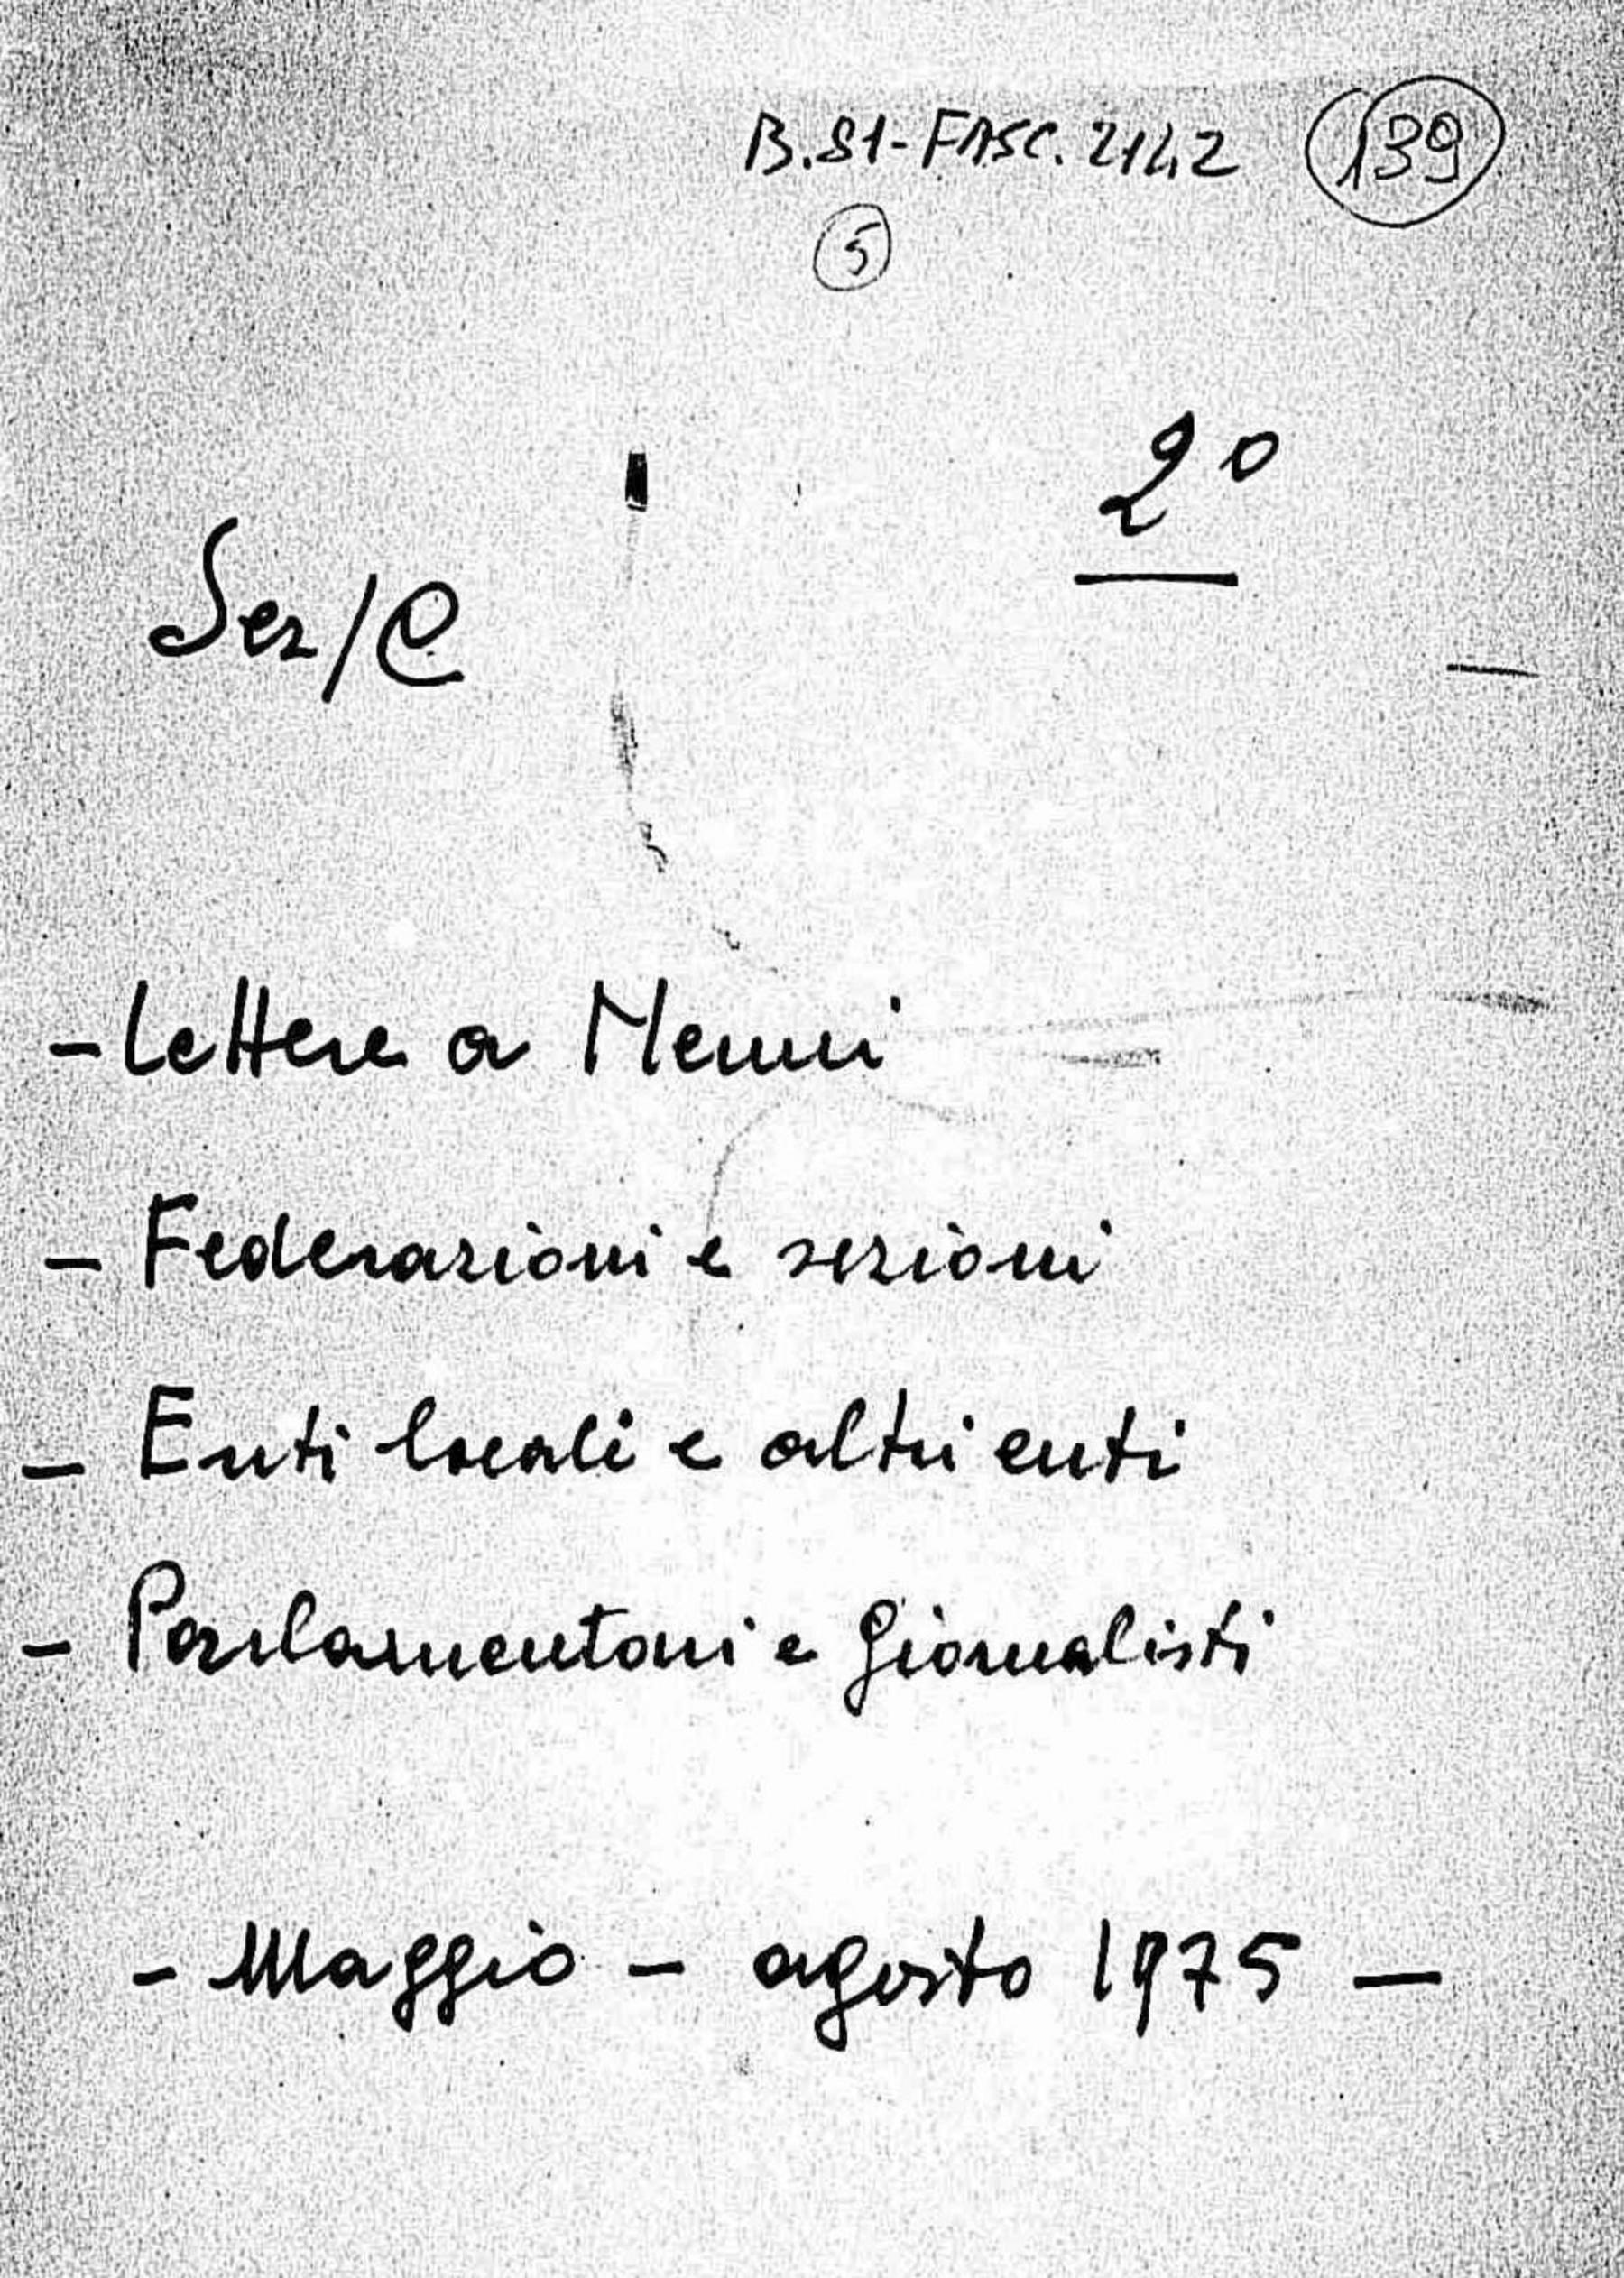 B.81-FASC. 2142 139
5
2°
Ser/C
- Lettere a Nenni
- Federazioni e sezioni
- Enti locali e altri enti
- Parlamentari e giornalisti
- Maggio - agosto 1975 -